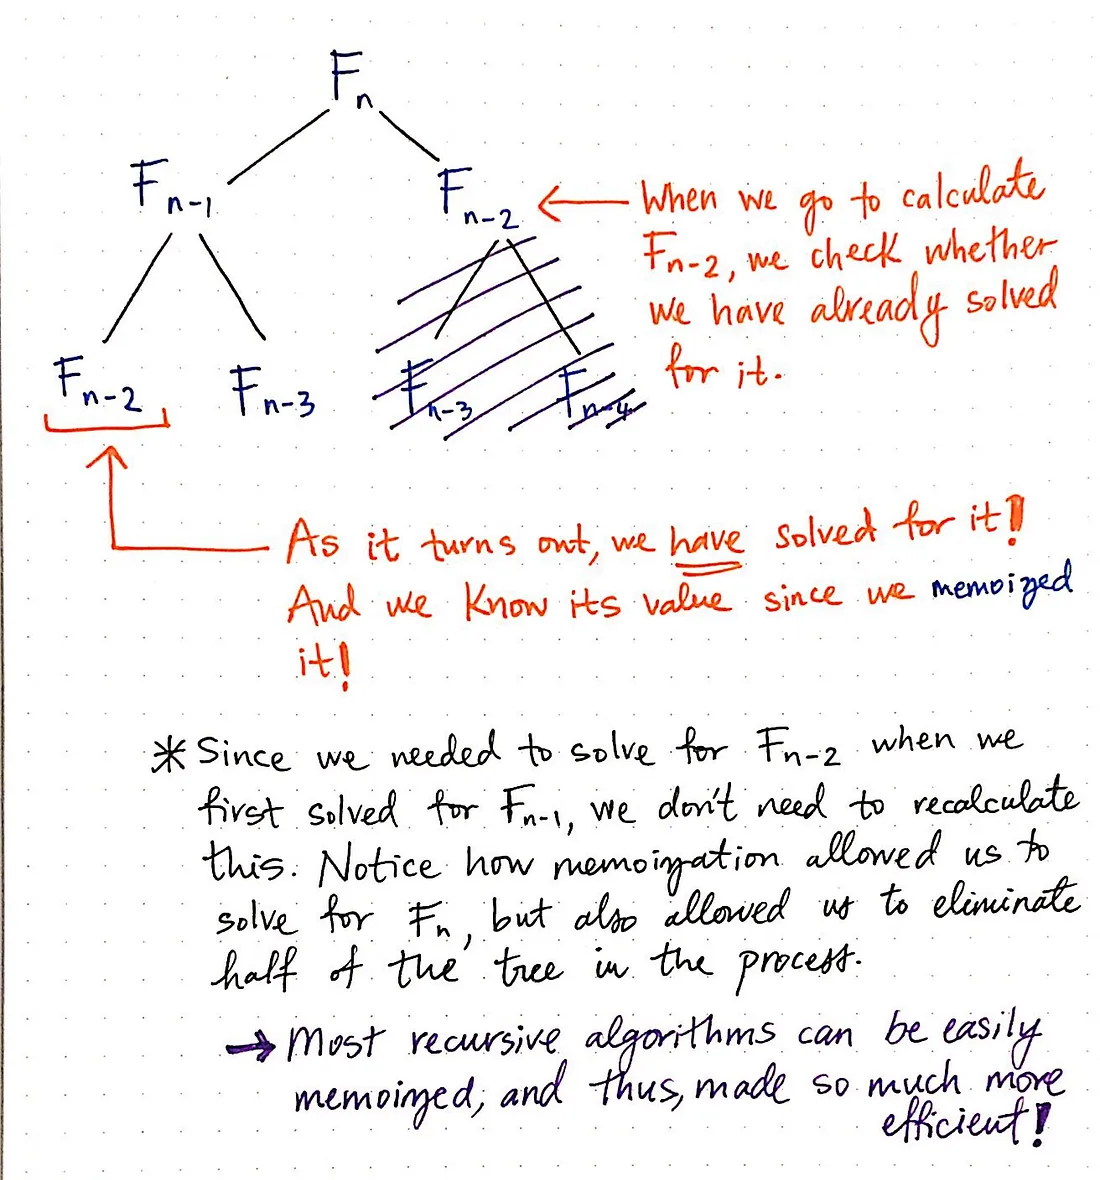 Fn
Fn-1
Fn-2
When we go to calculate
Fn-2, we check whether
we have already solved
for it.
Fn-2
Fn-3
Fn-3
Fn-4
As it turns out, we have solved for it!
And we know its value since we memoized
it!
* Since we needed to solve for Fn-2 when we
first solved for Fn-1, we don't need to recalculate
this. Notice how memoization allowed us to
solve for Fn, but also allowed us to eliminate
half of the tree in the process.
→ Most recursive algorithms can be easily
memoized, and thus, made so much more
efficient!